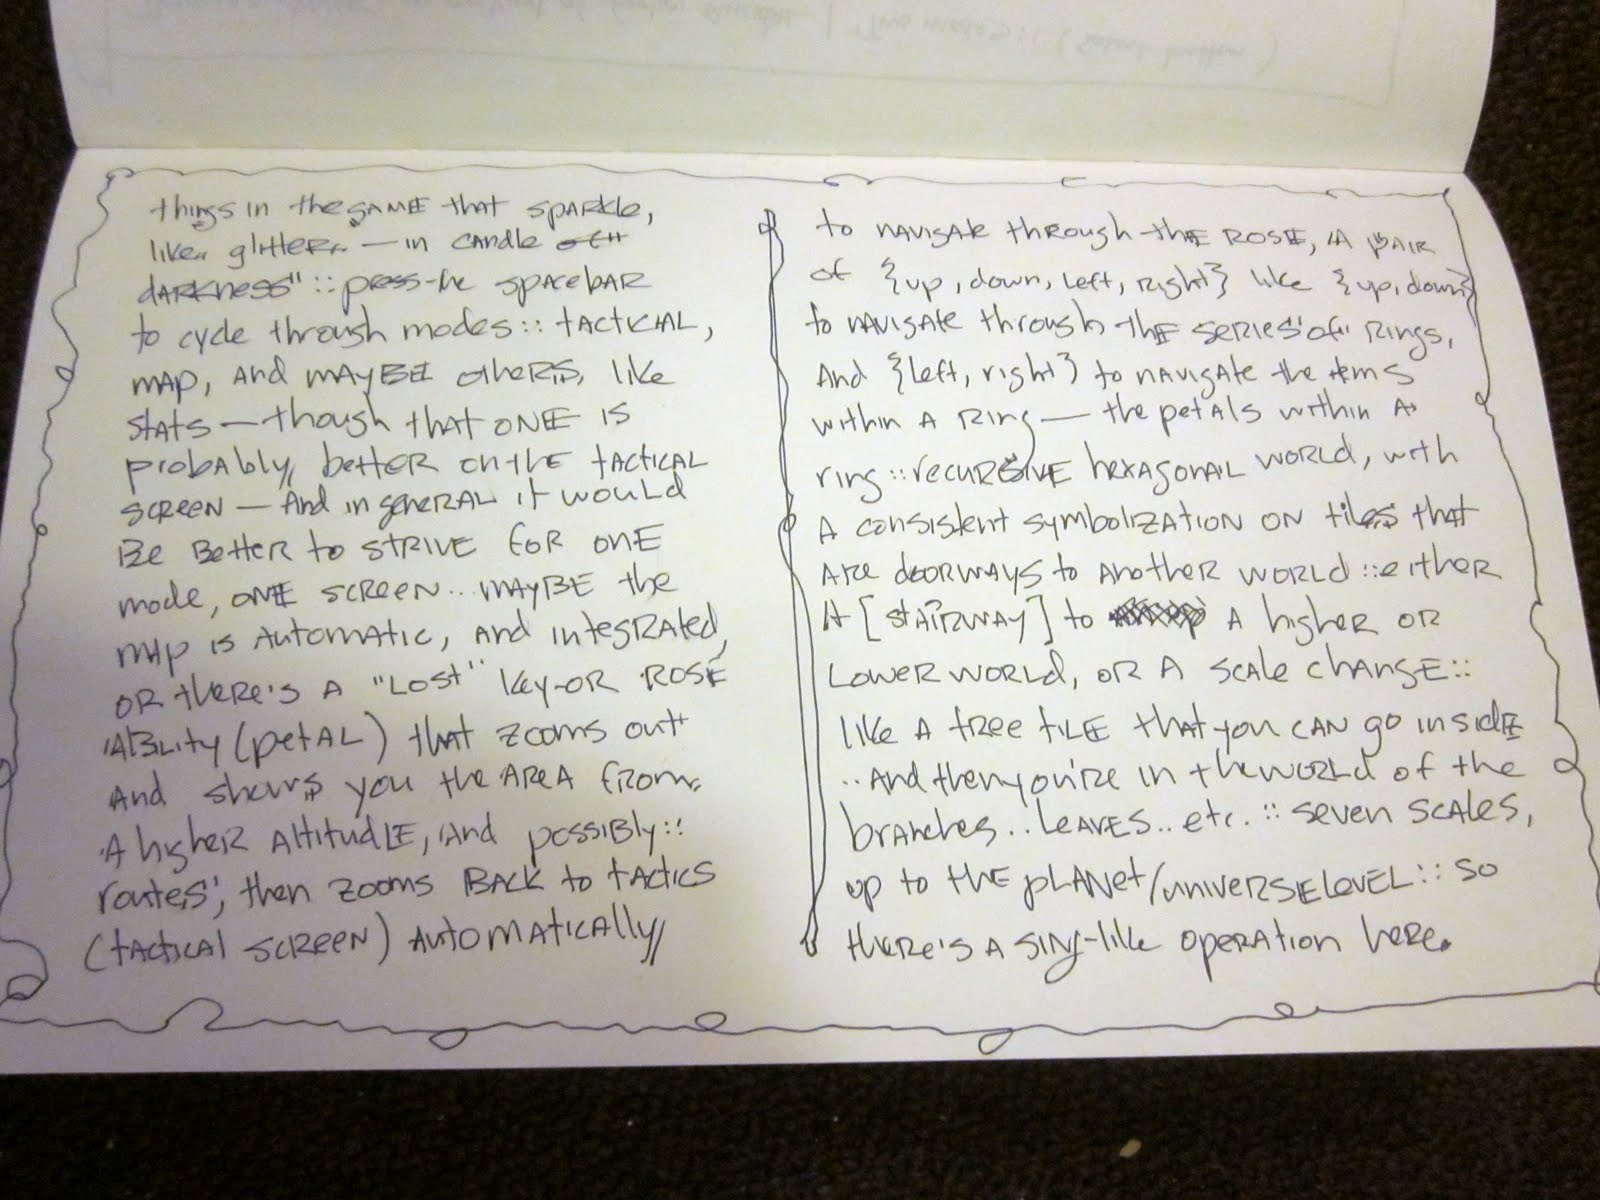 things in the GAME that sparkle,
like glitter — in candle
darkness" :: press the spacebar
to cycle through modes :: tactical,
map, and maybe others, like
stats — though that one is
probably better on the tactical
screen — and in general it would
be better to strive for one
mode, one screen.. maybe the
map is automatic, and integrated,
or there's a "Lost" key - or rose
ability (petal) that zooms out
and shows you the area from
a higher altitude, and possibly ::
routes; then zooms back to tactics
(tactical screen) automatically
to navigate through the rose, a pair
of {up, down, left, right} like {up, down}
to navigate through the series of rings,
and {left, right} to navigate the items
within a ring — the petals within a
ring :: recursive hexagonal world, with
a consistent symbolization on tiles that
are doorways to another world :: either
a [stairway] to a higher or
lower world, or a scale change ::
like a tree tile that you can go inside
.. and then you're in the world of the
branches.. leaves.. etc. :: seven scales,
up to the planet/universe level :: so
there's a sing-like operation here.
Two modes :: (select button)